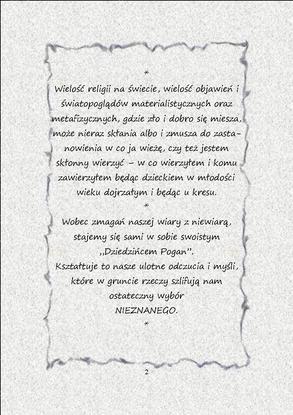 *
Wielość religii na świecie, wielość objawień i
światopoglądów materialistycznych oraz
metafizycznych, gdzie zło i dobro się miesza,
może nieraz skłania albo i zmusza do zasta-
nowienia w co ja wieżę, czy też jestem
skłonny wierzyć – w co wierzyłem i komu
zawierzyłem będąc dzieckiem w młodości
wieku dojrzałym i będąc u kresu.
*
Wobec zmagań naszej wiary z niewiarą,
stajemy się sami w sobie swoistym
,,Dziedzińcem Pogan”.
Kształtuje to nasze ulotne odczucia i myśli,
które w gruncie rzeczy szlifują nam
ostateczny wybór
NIEZNANEGO.
*
2